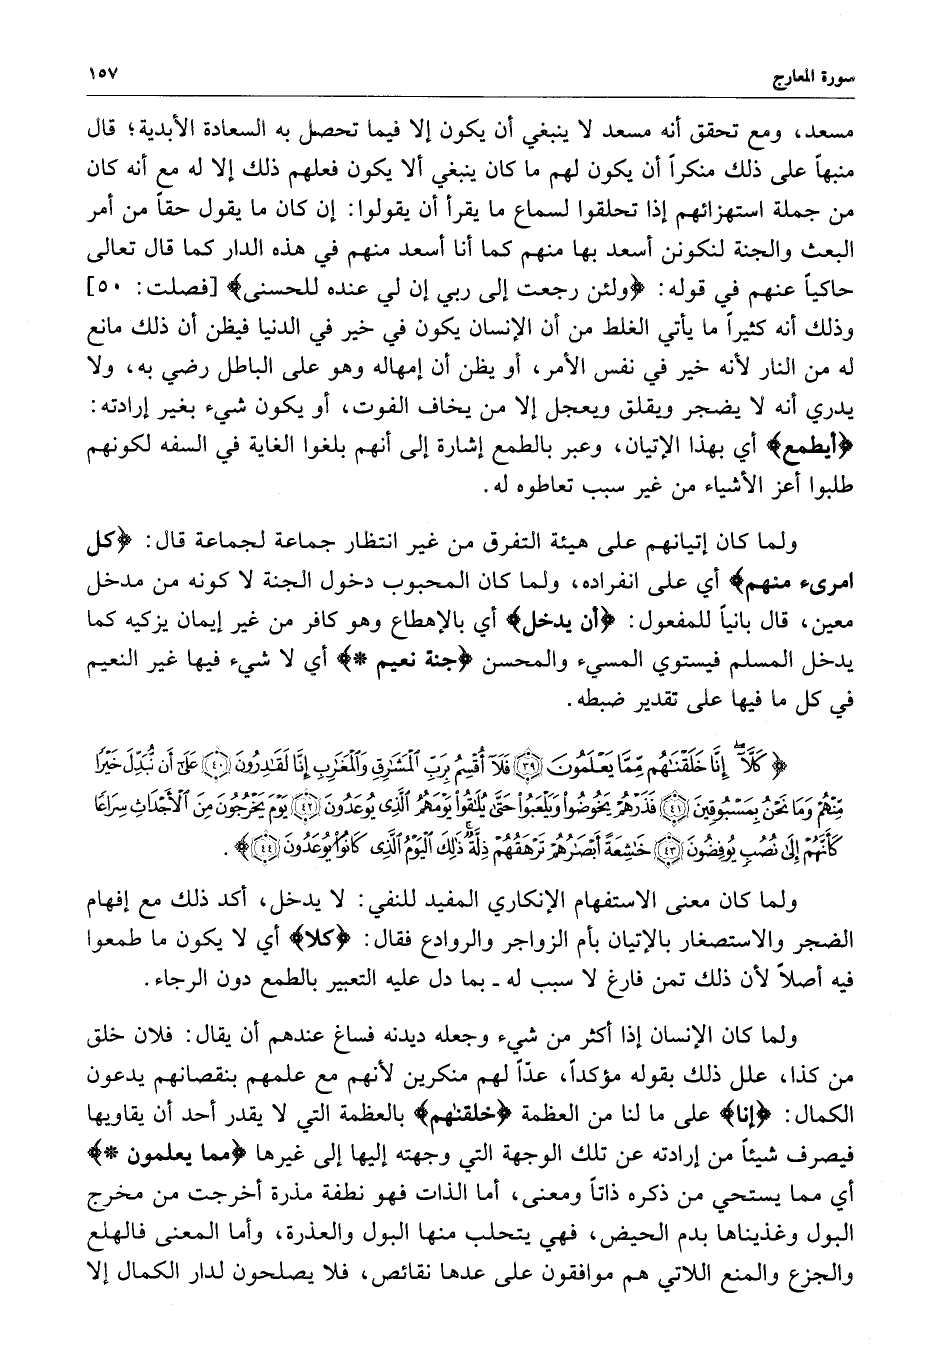 سورة المعارج
١٥٧
مسعد، ومع تحقق أنه مسعد لا ينبغي أن يكون إلا فيما تحصل به السعادة الأبدية؛ قال
منبهاً على ذلك منكراً أن يكون لهم ما كان ينبغي ألا يكون فعلهم ذلك إلا له مع أنه كان
من جملة استهزائهم إذا تحلقوا لسماع ما يقرأ أن يقولوا: إن كان ما يقول حقاً من أمر
البعث والجنة لنكونن أسعد بها منهم كما أنا أسعد منهم في هذه الدار كما قال تعالى
حاكياً عنهم في قوله: ﴿ولئن رجعت إلى ربي إن لي عنده للحسنى﴾ [فصلت: ٥٠]
وذلك أنه كثيراً ما يأتي الغلط من أن الإنسان يكون في خير في الدنيا فيظن أن ذلك مانع
له من النار لأنه خير في نفس الأمر، أو يظن أن إمهاله وهو على الباطل رضي به، ولا
يدري أنه لا يضجر ويقلق ويعجل إلا من يخاف الفوت، أو يكون شيء بغير إرادته:
﴿أيطمع﴾ أي بهذا الإتيان، وعبر بالطمع إشارة إلى أنهم بلغوا الغاية في السفه لكونهم
طلبوا أعز الأشياء من غير سبب تعاطوه له.
ولما كان إتيانهم على هيئة التفرق من غير انتظار جماعة لجماعة قال: ﴿كل
امرىء منهم﴾ أي على انفراده، ولما كان المحبوب دخول الجنة لا كونه من مدخل
معين، قال بانياً للمفعول: ﴿أن يدخل﴾ أي بالإهطاع وهو كافر من غير إيمان يزكيه كما
يدخل المسلم فيستوي المسيء والمحسن ﴿جنة نعيم *﴾ أي لا شيء فيها غير النعيم
في كل ما فيها على تقدير ضبطه.
﴿ كَلَّآ إِنَّا خَلَقْنَٰهُم مِّمَّا يَعْلَمُونَ ٣٩ فَلَآ أُقْسِمُ بِرَبِّ ٱلْمَشَٰرِقِ وَٱلْمَغَٰرِبِ إِنَّا لَقَٰدِرُونَ ٤٠ عَلَىٰٓ أَن نُّبَدِّلَ خَيْرًا
مِّنْهُمْ وَمَا نَحْنُ بِمَسْبُوقِينَ ٤١ فَذَرْهُمْ يَخُوضُوا۟ وَيَلْعَبُوا۟ حَتَّىٰ يُلَٰقُوا۟ يَوْمَهُمُ ٱلَّذِى يُوعَدُونَ ٤٢ يَوْمَ يَخْرُجُونَ مِنَ ٱلْأَجْدَاثِ سِرَاعًا
كَأَنَّهُمْ إِلَىٰ نُصُبٍ يُوفِضُونَ ٤٣ خَٰشِعَةً أَبْصَٰرُهُمْ تَرْهَقُهُمْ ذِلَّةٌ ذَٰلِكَ ٱلْيَوْمُ ٱلَّذِى كَانُوا۟ يُوعَدُونَ ٤٤ ﴾ .
ولما كان معنى الاستفهام الإنكاري المفيد للنفي: لا يدخل، أكد ذلك مع إفهام
الضجر والاستصغار بالإتيان بأم الزواجر والروادع فقال: ﴿كلا﴾ أي لا يكون ما طمعوا
فيه أصلاً لأن ذلك تمن فارغ لا سبب له ـ بما دل عليه التعبير بالطمع دون الرجاء.
ولما كان الإنسان إذا أكثر من شيء وجعله ديدنه فساغ عندهم أن يقال: فلان خلق
من كذا، علل ذلك بقوله مؤكداً، عدّاً لهم منكرين لأنهم مع علمهم بنقصانهم يدعون
الكمال: ﴿إنا﴾ على ما لنا من العظمة ﴿خلقنٰهم﴾ بالعظمة التي لا يقدر أحد أن يقاويها
فيصرف شيئاً من إرادته عن تلك الوجهة التي وجهته إليها إلى غيرها ﴿مما يعلمون *﴾
أي مما يستحي من ذكره ذاتاً ومعنى، أما الذات فهو نطفة مذرة أخرجت من مخرج
البول وغذيناها بدم الحيض، فهي يتحلب منها البول والعذرة، وأما المعنى فالهلع
والجزع والمنع اللاتي هم موافقون على عدها نقائص، فلا يصلحون لدار الكمال إلا